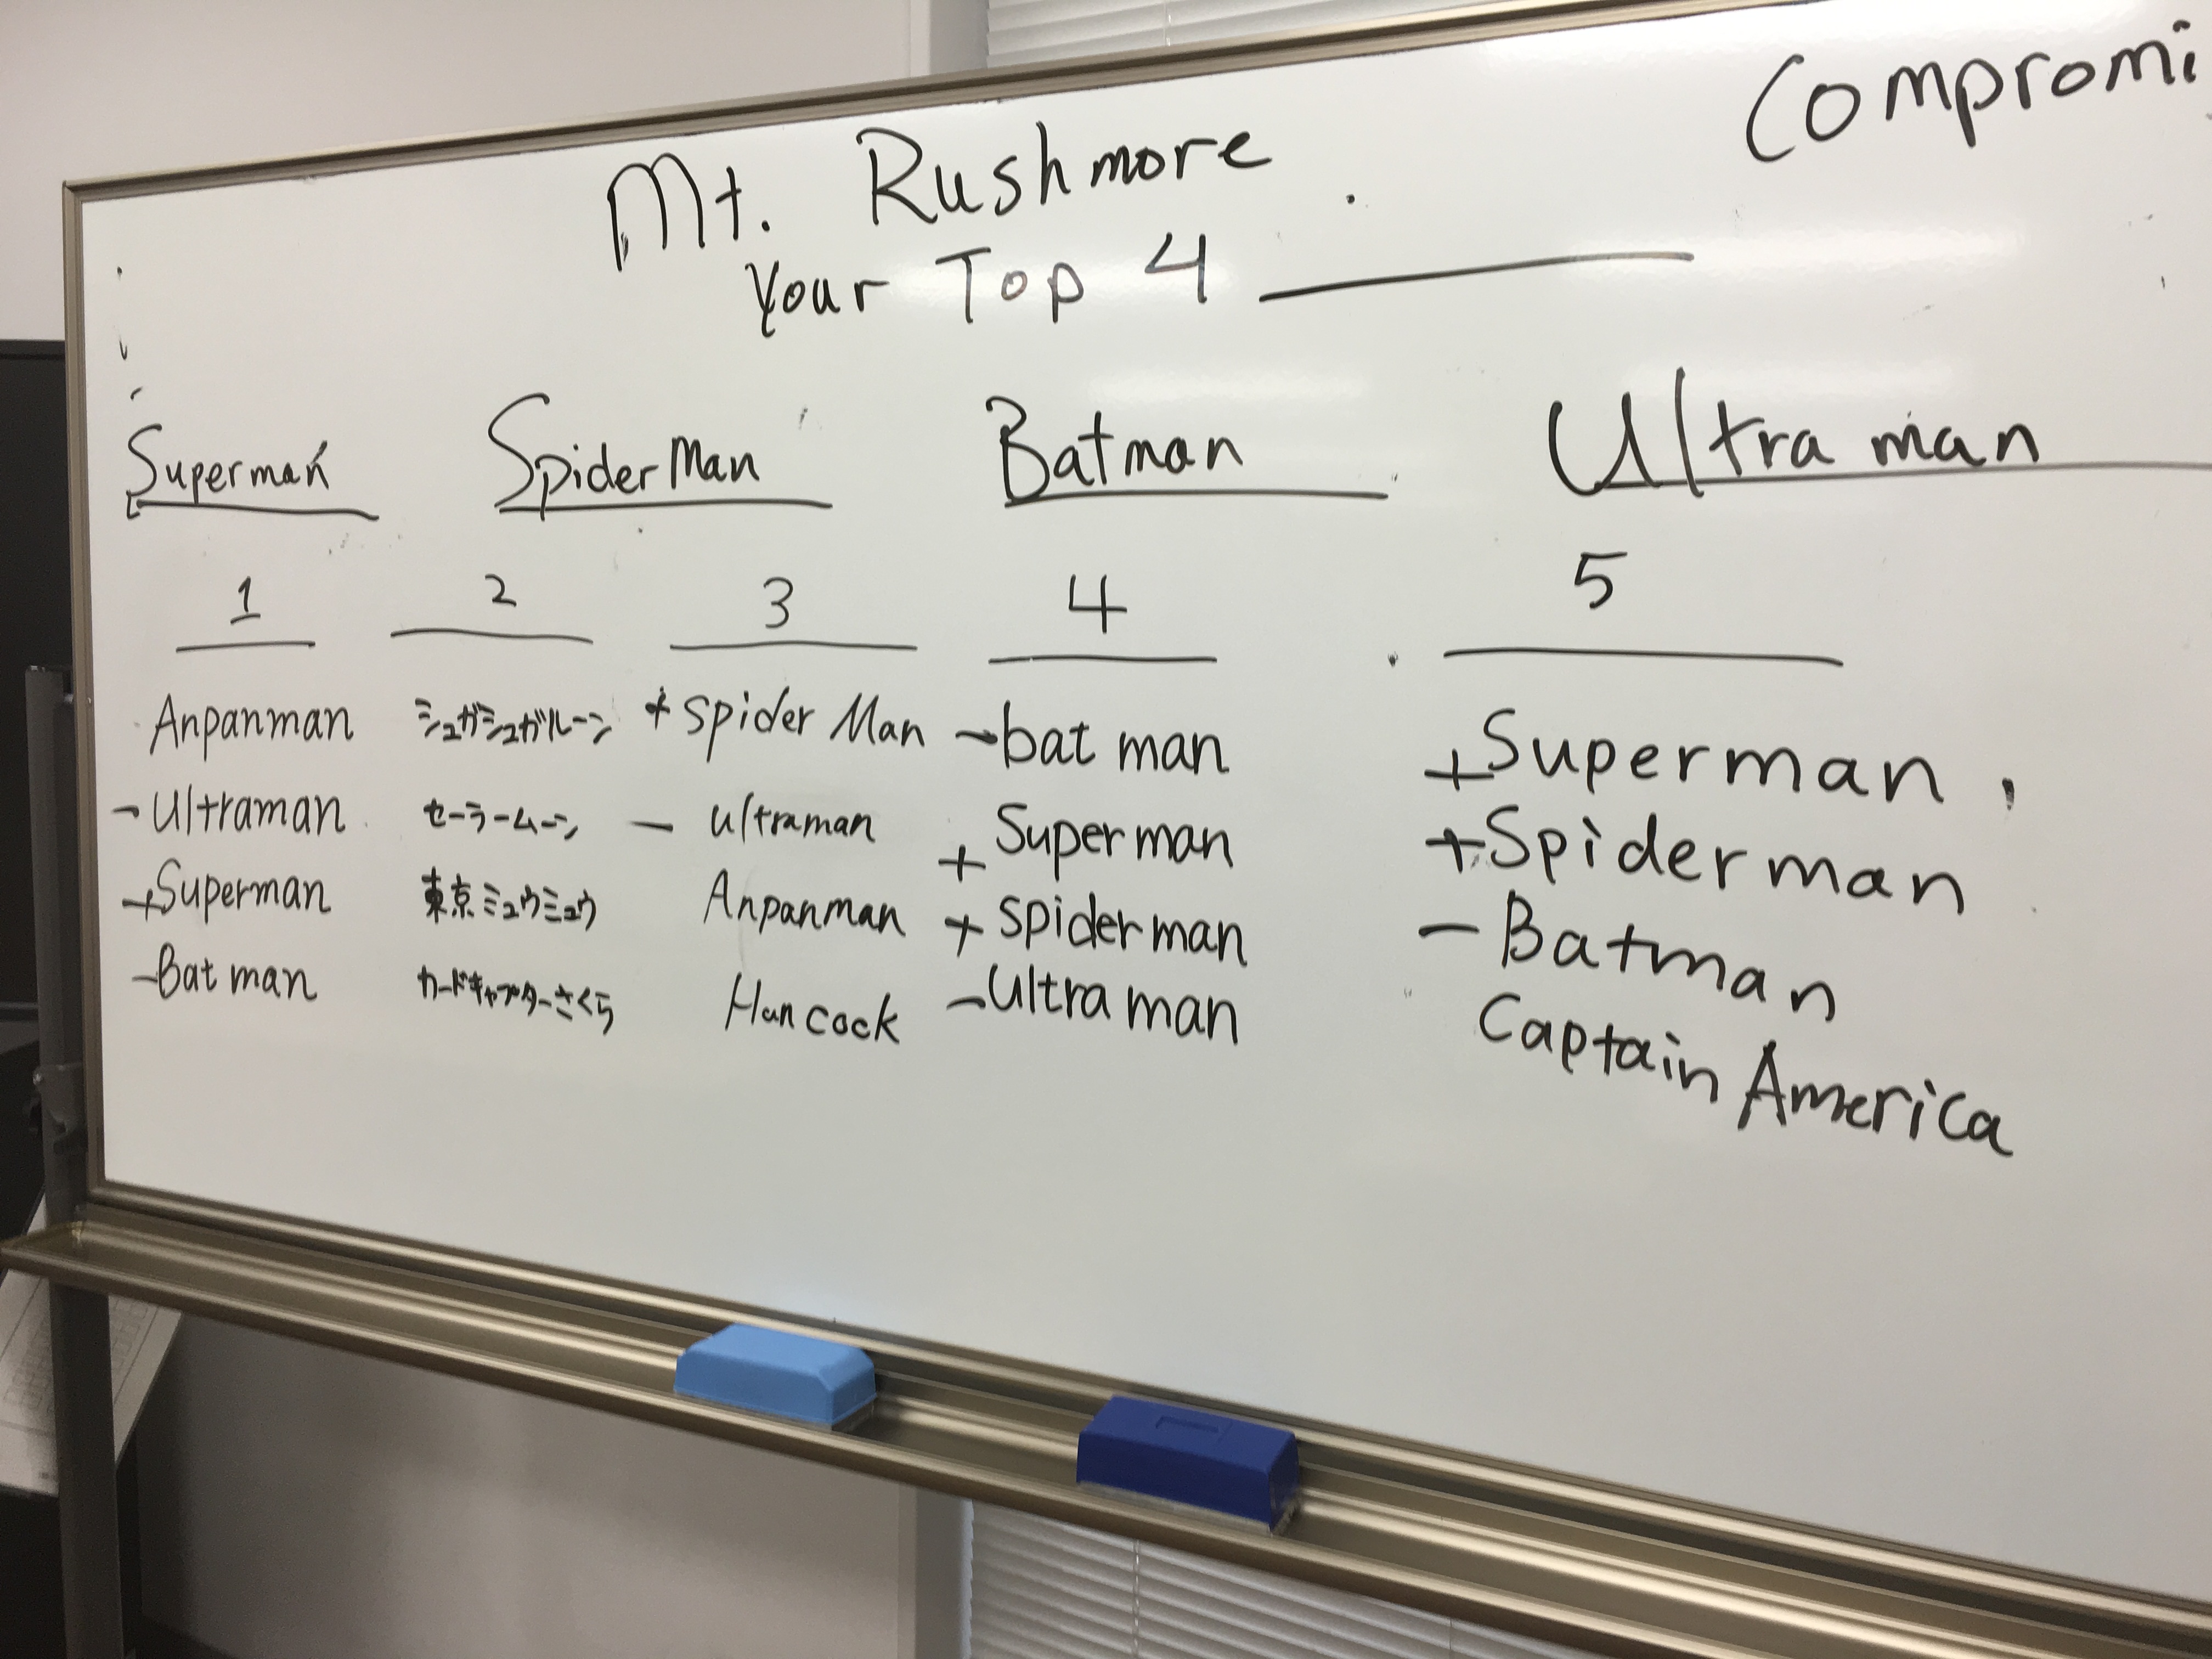 Compromi
Mt. Rushmore
Your Top 4 ______
Superman Spider Man Batman Ultra man
1 2 3 4 5
Anpanman
- Ultraman
+ Superman
- Bat man
シュガシュガルーン
セーラームーン
東京ミュウミュウ
カードキャプターさくら
+ spider Man
- ultraman
Anpanman
Hancock
- bat man
+ Super man
+ spider man
- Ultra man
+ Superman
+ Spider man
- Batman
Captain America